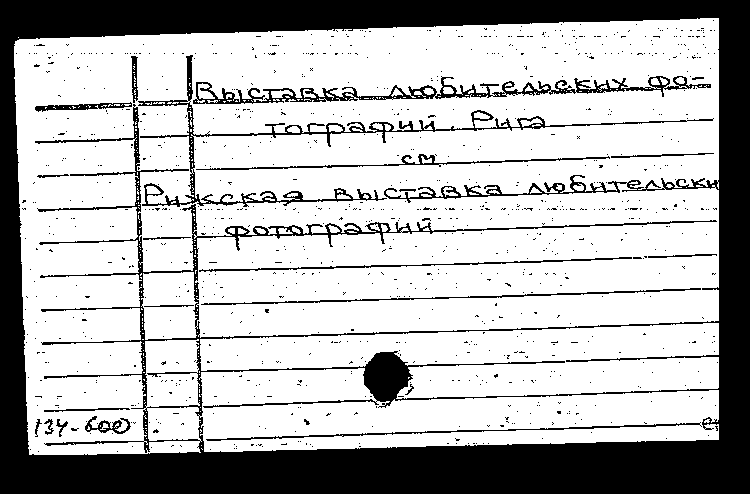 Выставка любительских фо-
тографий. Рига
см
Рижская выставка любительски
фотографий
134-600